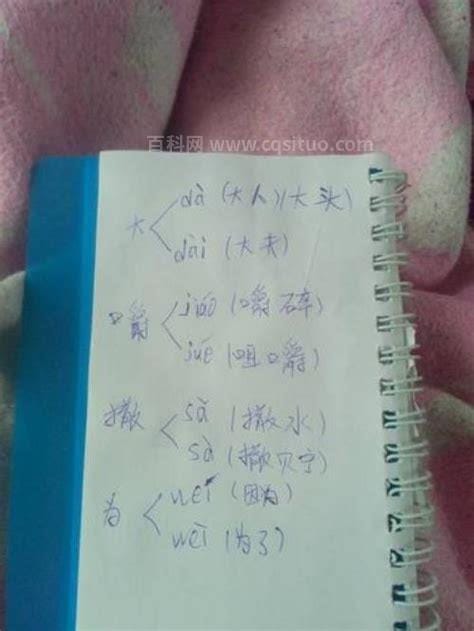 百科网 www.cqsituo.com
大
dà (大人)(大头)
dài (大夫)
嚼
jiáo (嚼碎)
jué (咀嚼)
撒
sà (撒水)
sà (撒贝宁)
为
wēi (因为)
wèi (为了)